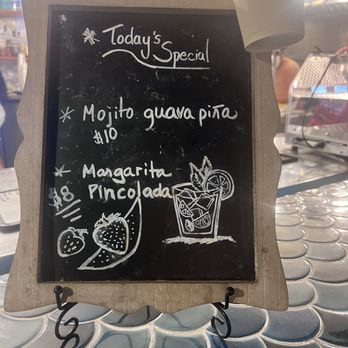 Today's
Special
Mojito guava piña
$10
Margarita
$8 Pincolada